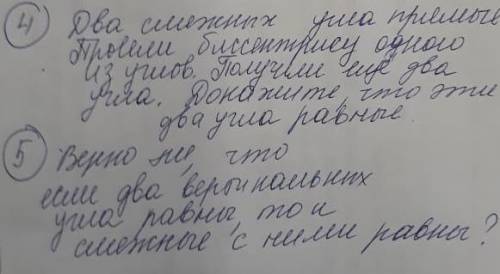 ④ Два смежных угла прямые
Провели биссектрису одного
из углов. Получили ещё два
угла. Докажите, что эти
два угла равные.
⑤ Верно ли, что
если два вертикальных
угла равны, то и
смежные с ними равны?